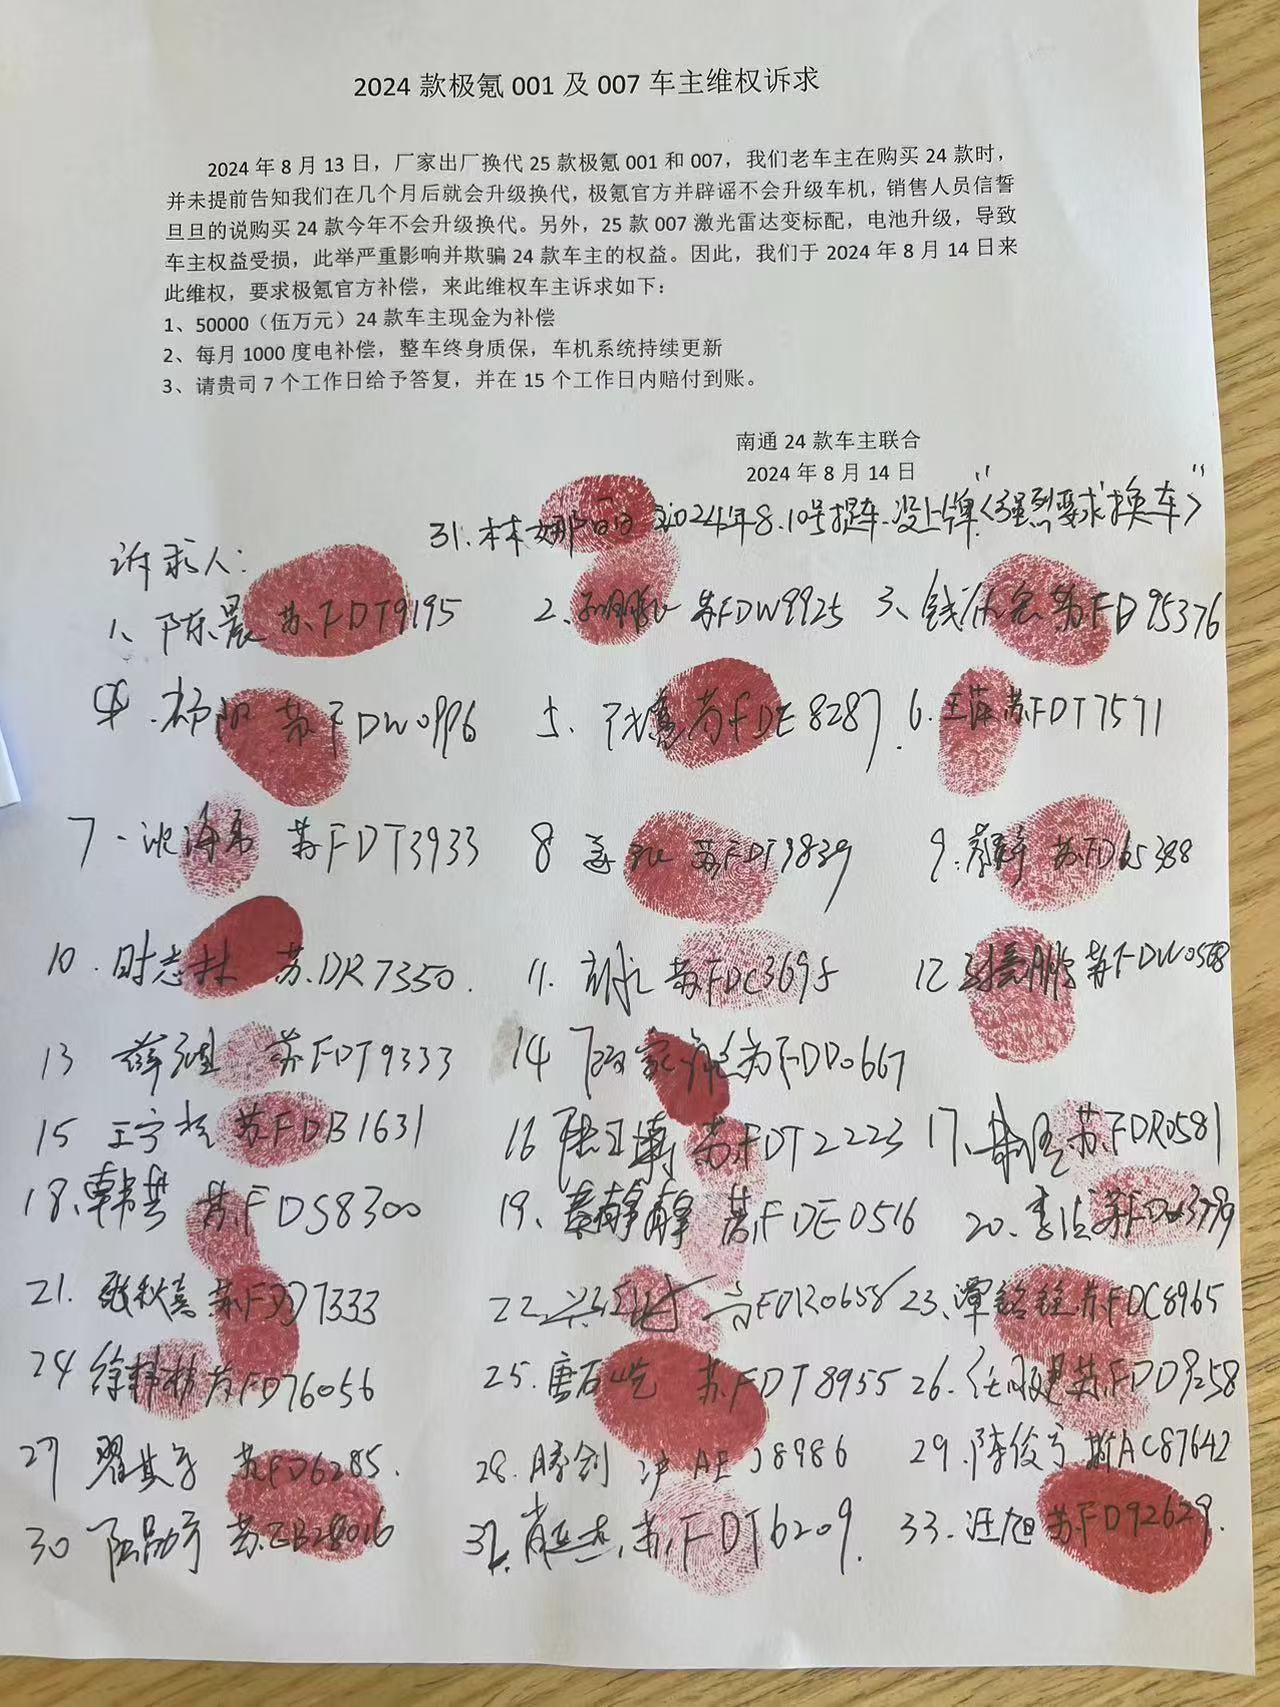 2024 款极氪 001 及 007 车主维权诉求
2024 年 8 月 13 日，厂家出厂换代 25 款极氪 001 和 007，我们老车主在购买 24 款时，
并未提前告知我们在几个月后就会升级换代，极氪官方并辟谣不会升级车机，销售人员信誓
旦旦的说购买 24 款今年不会升级换代。另外，25 款 007 激光雷达变标配，电池升级，导致
车主权益受损，此举严重影响并欺骗 24 款车主的权益。因此，我们于 2024 年 8 月 14 日来
此维权，要求极氪官方补偿，来此维权车主诉求如下：
1、50000（伍万元）24 款车主现金为补偿
2、每月 1000 度电补偿，整车终身质保，车机系统持续更新
3、请贵司 7 个工作日给予答复，并在 15 个工作日内赔付到账。
南通 24 款车主联合
2024 年 8 月 14 日
31.林娜 2024年8.10号提车.没上牌"〈强烈要求换车〉"
诉求人：
1、陈晨 苏FDT9195 2. 苏FDW9925 3、钱 苏FD95376
4. 阳 苏FDW0996 5、 苏FDE8287. 6.王萍 苏FDT7571
7、沈海 苏FDT3933 8 苏FDT9839 9. 苏FD65388
10.时志林 苏DR7350. 11. 苏FDC3695 12 鹏 苏FDW0568
13 薛 苏FDT9333 14 家 苏FDD0667
15 王宇 苏FDB1631 16 苏FDT2223 17. 苏FDR0581
18.韩 苏FDS8300 19、静静 苏FDE0516 20. 李 苏FD
21. 秋 苏FDD7333 22 FDR0658 23.谭铭 苏FDC8965
24 徐 苏FD76056 25.唐石屹 苏FDT8955 26.任 苏FDD9258
27 翟其 苏FD6285. 28.滕创 沪AE J8986 29.陈俊 AC87642
30 陆 苏EB28016 32.肖 苏FDT6209. 33.汪旭 苏FD92629.